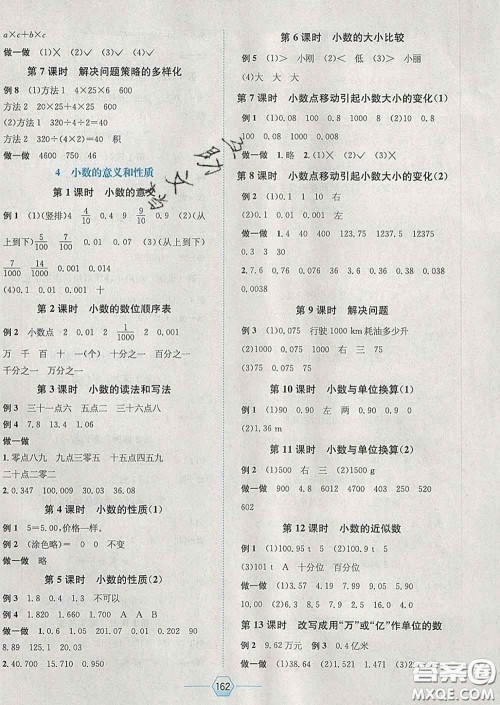 a×c+b×c
做一做 (1)× (2)✓ (3)×
第7课时 解决问题策略的多样化
例8 (1)方法1 4×25×6 600
方法2 20×25+4×25 600
(2)方法1 320÷4÷10 8
方法2 320÷(4×10) 积
做一做 4600 750 46
4 小数的意义和性质
第1课时 小数的意义
例1 (1)(竖排) 4/10 0.4 9/10 0.9 (2)(从
上到下) 5/100 7/100 0.14 (3)(从上到下)
7/1000 14/1000 0.014
(4)0.1 0.01 0.001
第2课时 小数的数位顺序表
例2 小数点 2 0.01 2 1/1000 0.002
万 千 百 十 一(个) 十分之一 百分之一
千分之一
第3课时 小数的读法和写法
例3 三十一点六 五点二 二点四
做一做
1.零点八九 九点零三 五点二五
二十点二零二
2.0.38 100.009 30.03 10.36
第4课时 小数的性质(1)
例1 5=5.00,价格一样。
例2 (涂色略) = 0 0 不变
第5课时 小数的性质(2)
例3 0.8 1.09 1.3 不可以
例4 1.820 1.760 1.700 A A B
做一做
1.4.01 2.8 1.07 0.7
2.0.450 15.070 0.950
第6课时 小数的大小比较
例5 (1)> 小刚 (2)< > 小丽
(4)大 大 大
做一做 (1)> < > (2)< > <
第7课时 小数点移动引起小数大小的变化(1)
例1 (1)8000 0.08 0.008 (3)10 100
1000 1/10 1/100 1/1000
做一做 1.略 2.✓ × ×
第8课时 小数点移动引起小数大小的变化(2)
例2 (1)0.1 1 10 右
(2)0.1 0.01 0.001 左
做一做
1.4 40 400 123.5 1235 12350
2.7.6 0.76 0.076 0.38 0.038
0.0038
第9课时 解决问题
例3 (1)0.075 行驶1000 km耗油多少升
(2)0.075 1000 右 三 75
做一做 (1)0.075 (2)7.5
第10课时 小数与单位换算(1)
例1 (1)90 0.90 左 两 0.90
(2)1.34 m 0.95
第11课时 小数与单位换算(2)
做一做 (1)500 g (2)1500 g
第12课时 小数的近似数
例1 (1)100.95 t (2)100.9 t 5
(3)101 A 十分位 百分位
做一做 (1)2.53 2.5 (2)0.39 7.90
第13课时 改写成用"万"或"亿"作单位的数
例2 9.62万元 例3 0.4亿米
做一做 (1)24.31 (2)0.1 (3)7.9
162
答案圈
MXQE.COM